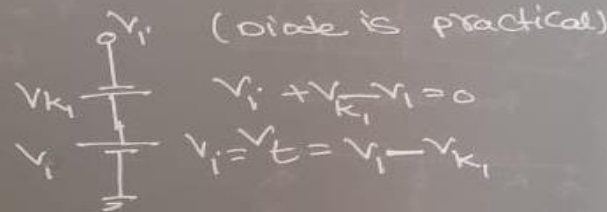 Vi (Diode is practical)
VK1 Vi + VK1 - V1 = 0
Vi Vi = Vt = V1 - VK1